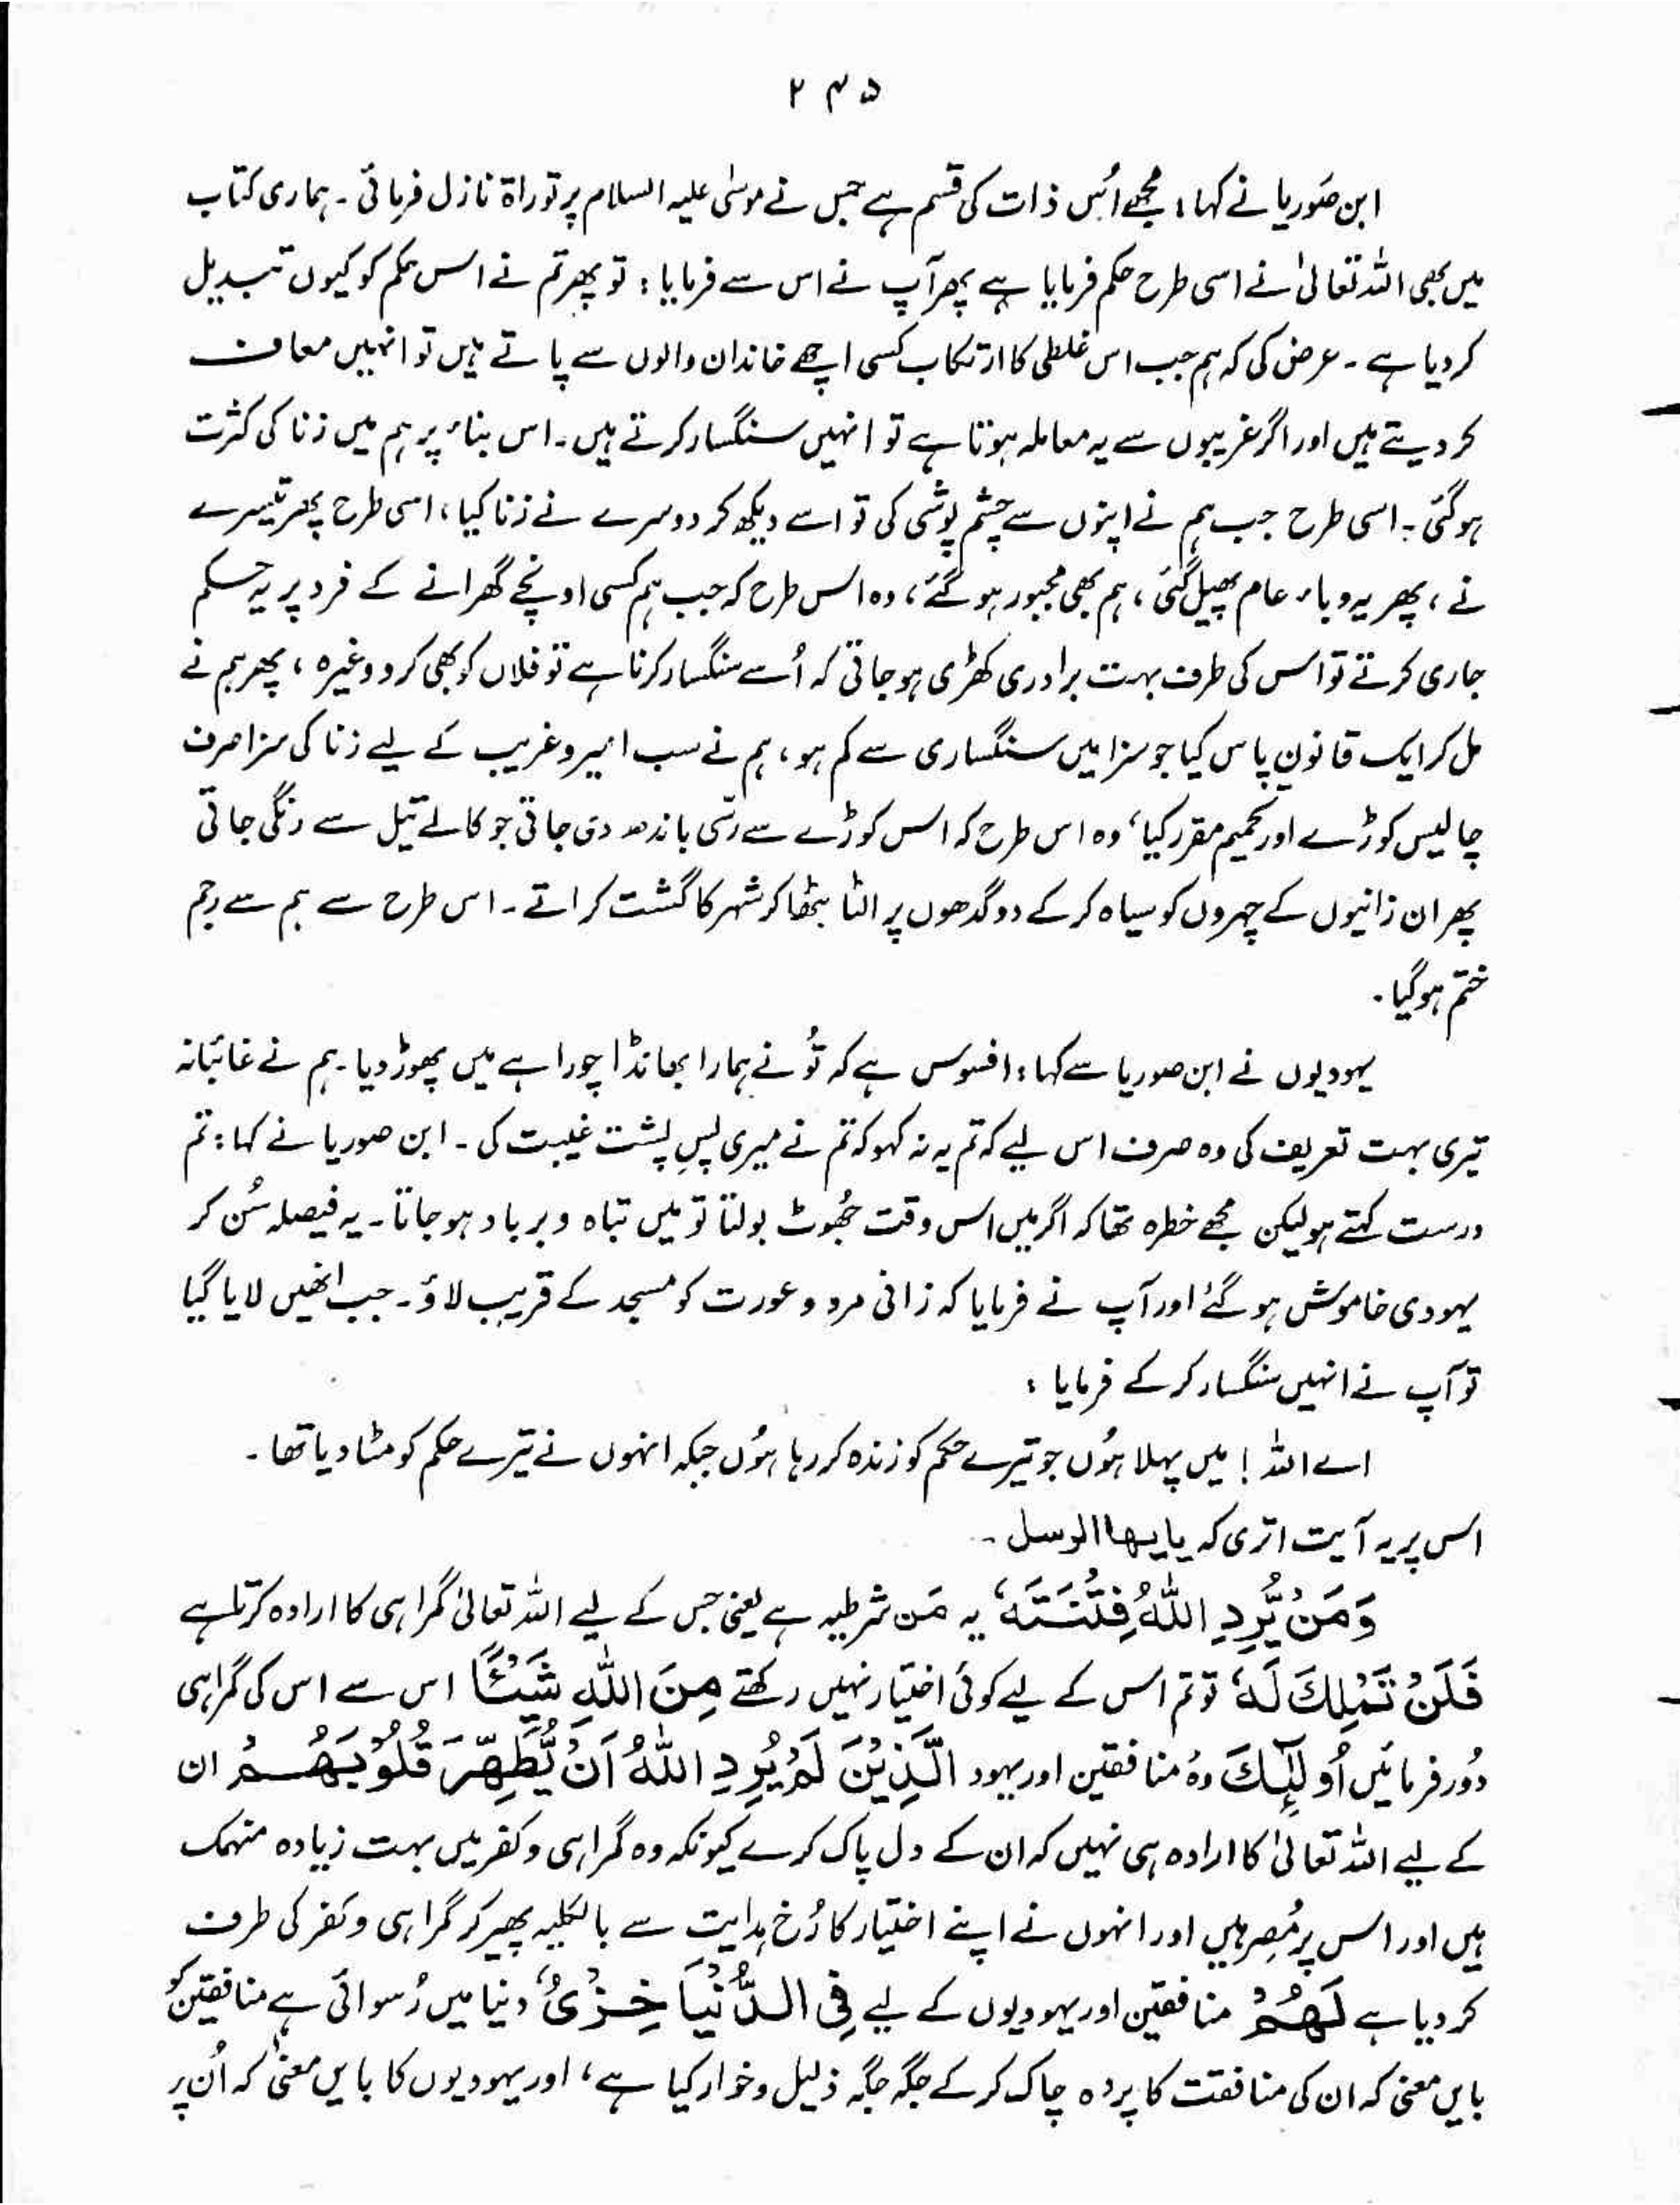 ۲۴۵
ابن صَوریا نے کہا: مجھے اُس ذات کی قسم ہے جس نے موسٰی علیہ السلام پر توراۃ نازل فرمائی ۔ ہماری کتاب
میں بھی اللہ تعالیٰ نے اسی طرح حکم فرمایا ہے پھر آپ نے اس سے فرمایا : تو پھر تم نے اس حکم کو کیوں تبدیل
کر دیا ہے ۔ عرض کی کہ ہم جب اس غلطی کا ارتکاب کسی اچھے خاندان والوں سے پاتے ہیں تو انہیں معاف
کر دیتے ہیں اور اگر غریبوں سے یہ معاملہ ہوتا ہے تو انہیں سنگسار کرتے ہیں ۔ اس بناء پر ہم میں زنا کی کثرت
ہو گئی ۔ اسی طرح جب ہم نے اپنوں سے چشم پوشی کی تو اسے دیکھ کر دوسرے نے زنا کیا ، اسی طرح پھر تیسرے
نے ، پھر یہ وباء عام پھیل گئی ، ہم بھی مجبور ہو گئے ، وہ اس طرح کہ جب ہم کسی اونچے گھرانے کے فرد پر یہ حکم
جاری کرتے تو اس کی طرف بہت برادری کھڑی ہو جاتی کہ اُسے سنگسار کرنا ہے تو فلاں کو بھی کرو وغیرہ ، پھر ہم نے
مل کر ایک قانون پاس کیا جو سزا میں سنگساری سے کم ہو ، ہم نے سب امیر و غریب کے لیے زنا کی سزا صرف
چالیس کوڑے اور تحمیم مقرر کیا ، وہ اس طرح کہ اس کوڑے سے رسّی باندھ دی جاتی جو کالے تیل سے رنگی جاتی
پھر ان زانیوں کے چہروں کو سیاہ کر کے دو گدھوں پر الٹا بٹھا کر شہر کا گشت کراتے ۔ اس طرح سے ہم سے رجم
ختم ہو گیا ۔
یہودیوں نے ابن صوریا سے کہا : افسوس ہے کہ تُو نے ہمارا بھانڈا چوراہے میں پھوڑ دیا ۔ ہم نے غائبانہ
تیری بہت تعریف کی وہ صرف اس لیے کہ تم یہ نہ کہو کہ تم نے میری پسِ پشت غیبت کی ۔ ابن صوریا نے کہا : تم
درست کہتے ہو لیکن مجھے خطرہ تھا کہ اگر میں اس وقت جُھوٹ بولتا تو میں تباہ و برباد ہو جاتا ۔ یہ فیصلہ سُن کر
یہودی خاموش ہو گئے اور آپ نے فرمایا کہ زانی مرد و عورت کو مسجد کے قریب لاؤ ۔ جب انھیں لایا گیا
تو آپ نے انہیں سنگسار کر کے فرمایا :
اے اللہ ! میں پہلا ہُوں جو تیرے حکم کو زندہ کر رہا ہُوں جبکہ انہوں نے تیرے حکم کو مٹا دیا تھا ۔
اس پر یہ آیت اتری کہ یایھا الرسل ۔
وَمَنْ يُّرِدِ اللّٰهُ فِتْنَتَهٗ یہ مَن شرطیہ ہے یعنی جس کے لیے اللہ تعالیٰ گمراہی کا ارادہ کرتا ہے
فَلَنْ تَمْلِكَ لَهٗ تو تم اس کے لیے کوئی اختیار نہیں رکھتے مِنَ اللّٰهِ شَيْئًا اس سے اس کی گمراہی
دُور فرمائیں اُولٰٓئِكَ وہ منافقین اور یہود الَّذِيْنَ لَمْ يُرِدِ اللّٰهُ اَنْ يُّطَهِّرَ قُلُوْبَهُمْ ان
کے لیے اللہ تعالیٰ کا ارادہ ہی نہیں کہ ان کے دل پاک کرے کیونکہ وہ گمراہی و کفر میں بہت زیادہ منہمک
ہیں اور اس پر مُصِر ہیں اور انہوں نے اپنے اختیار کا رُخ ہدایت سے بالکلیہ پھیر کر گمراہی و کفر کی طرف
کر دیا ہے لَهُمْ منافقین اور یہودیوں کے لیے فِى الدُّنْيَا خِزْىٌ دنیا میں رُسوائی ہے منافقین کو
بایں معنی کہ ان کی منافقت کا پردہ چاک کر کے جگہ جگہ ذلیل و خوار کیا ہے ، اور یہودیوں کا بایں معنٰی کہ اُن پر